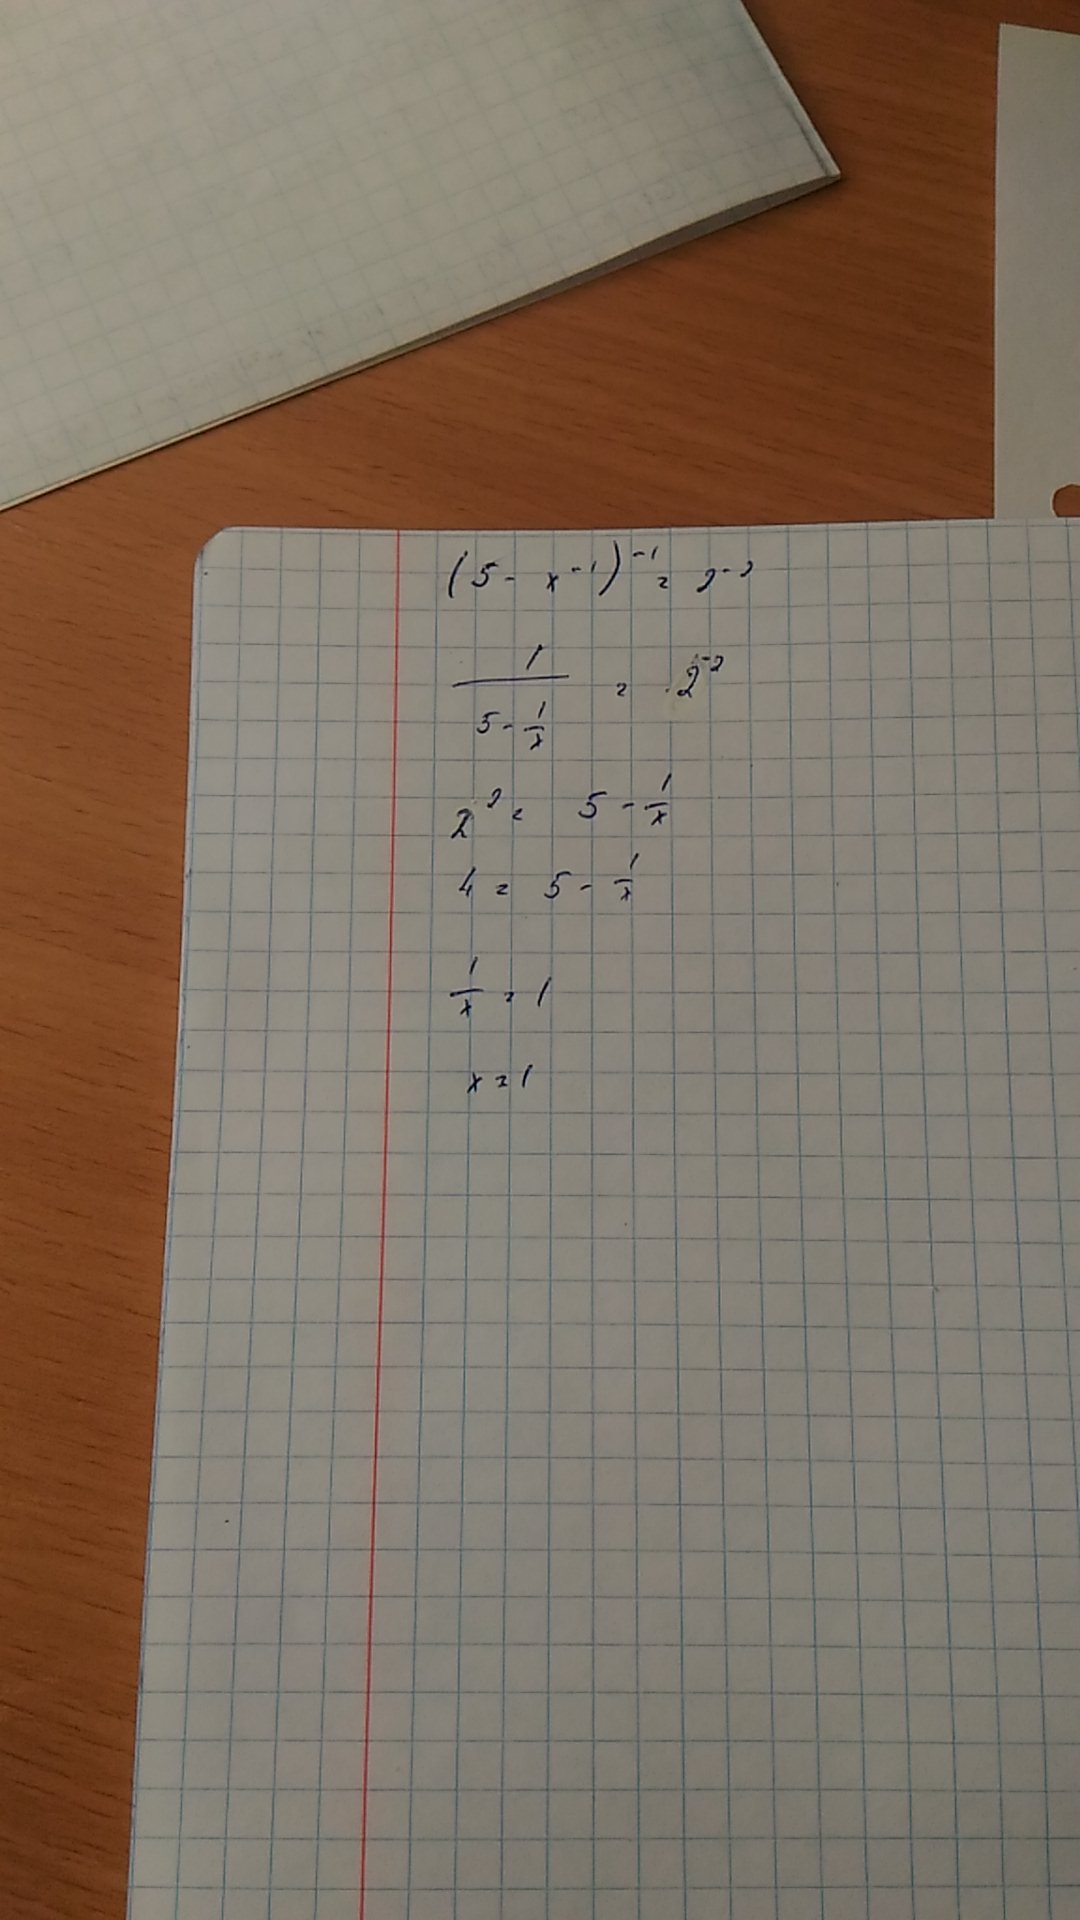 (5 - x⁻¹)⁻¹ = 2⁻²
1/(5 - 1/x) = 2⁻²
2² = 5 - 1/x
4 = 5 - 1/x
1/x = 1
x = 1